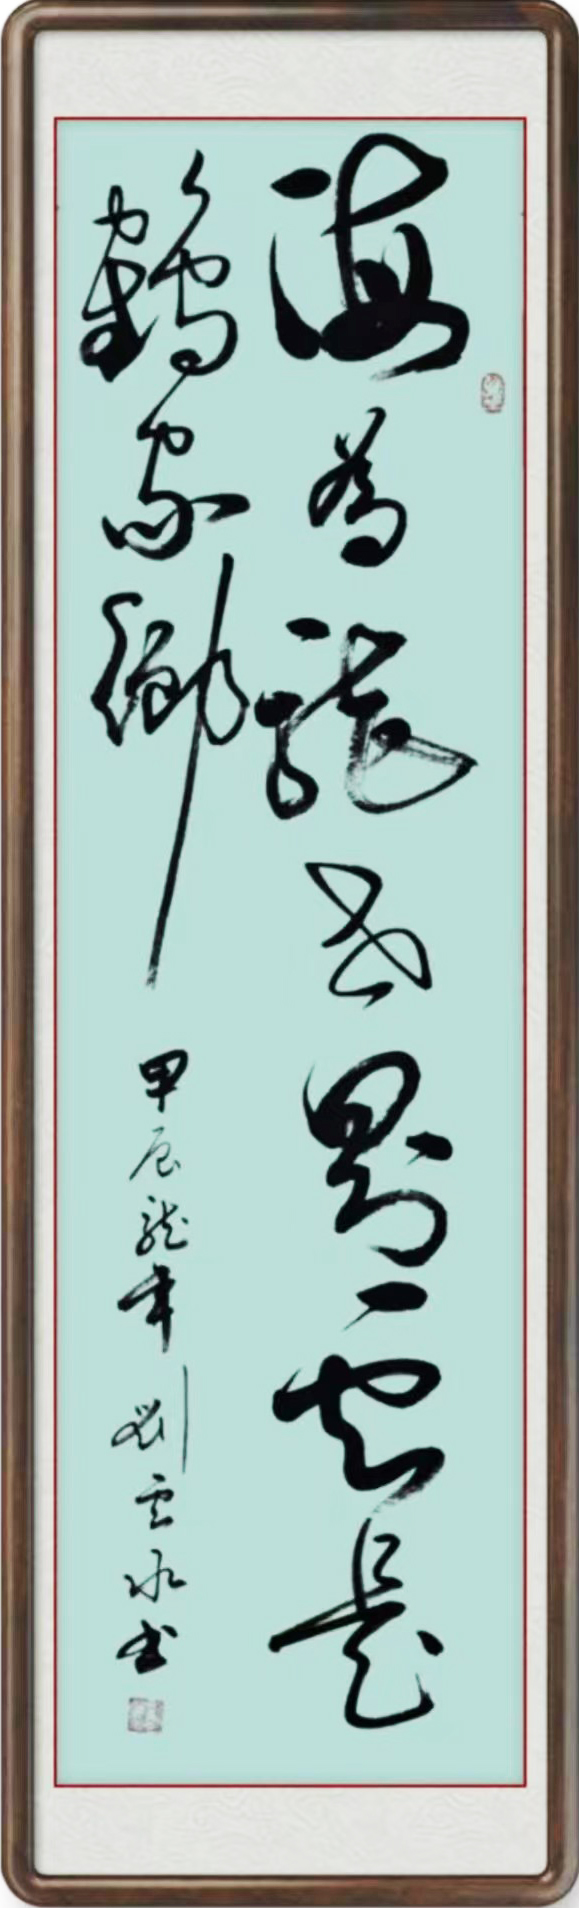 海為龍世界雲是
鶴家鄉 甲辰龍年 劉雲冰書